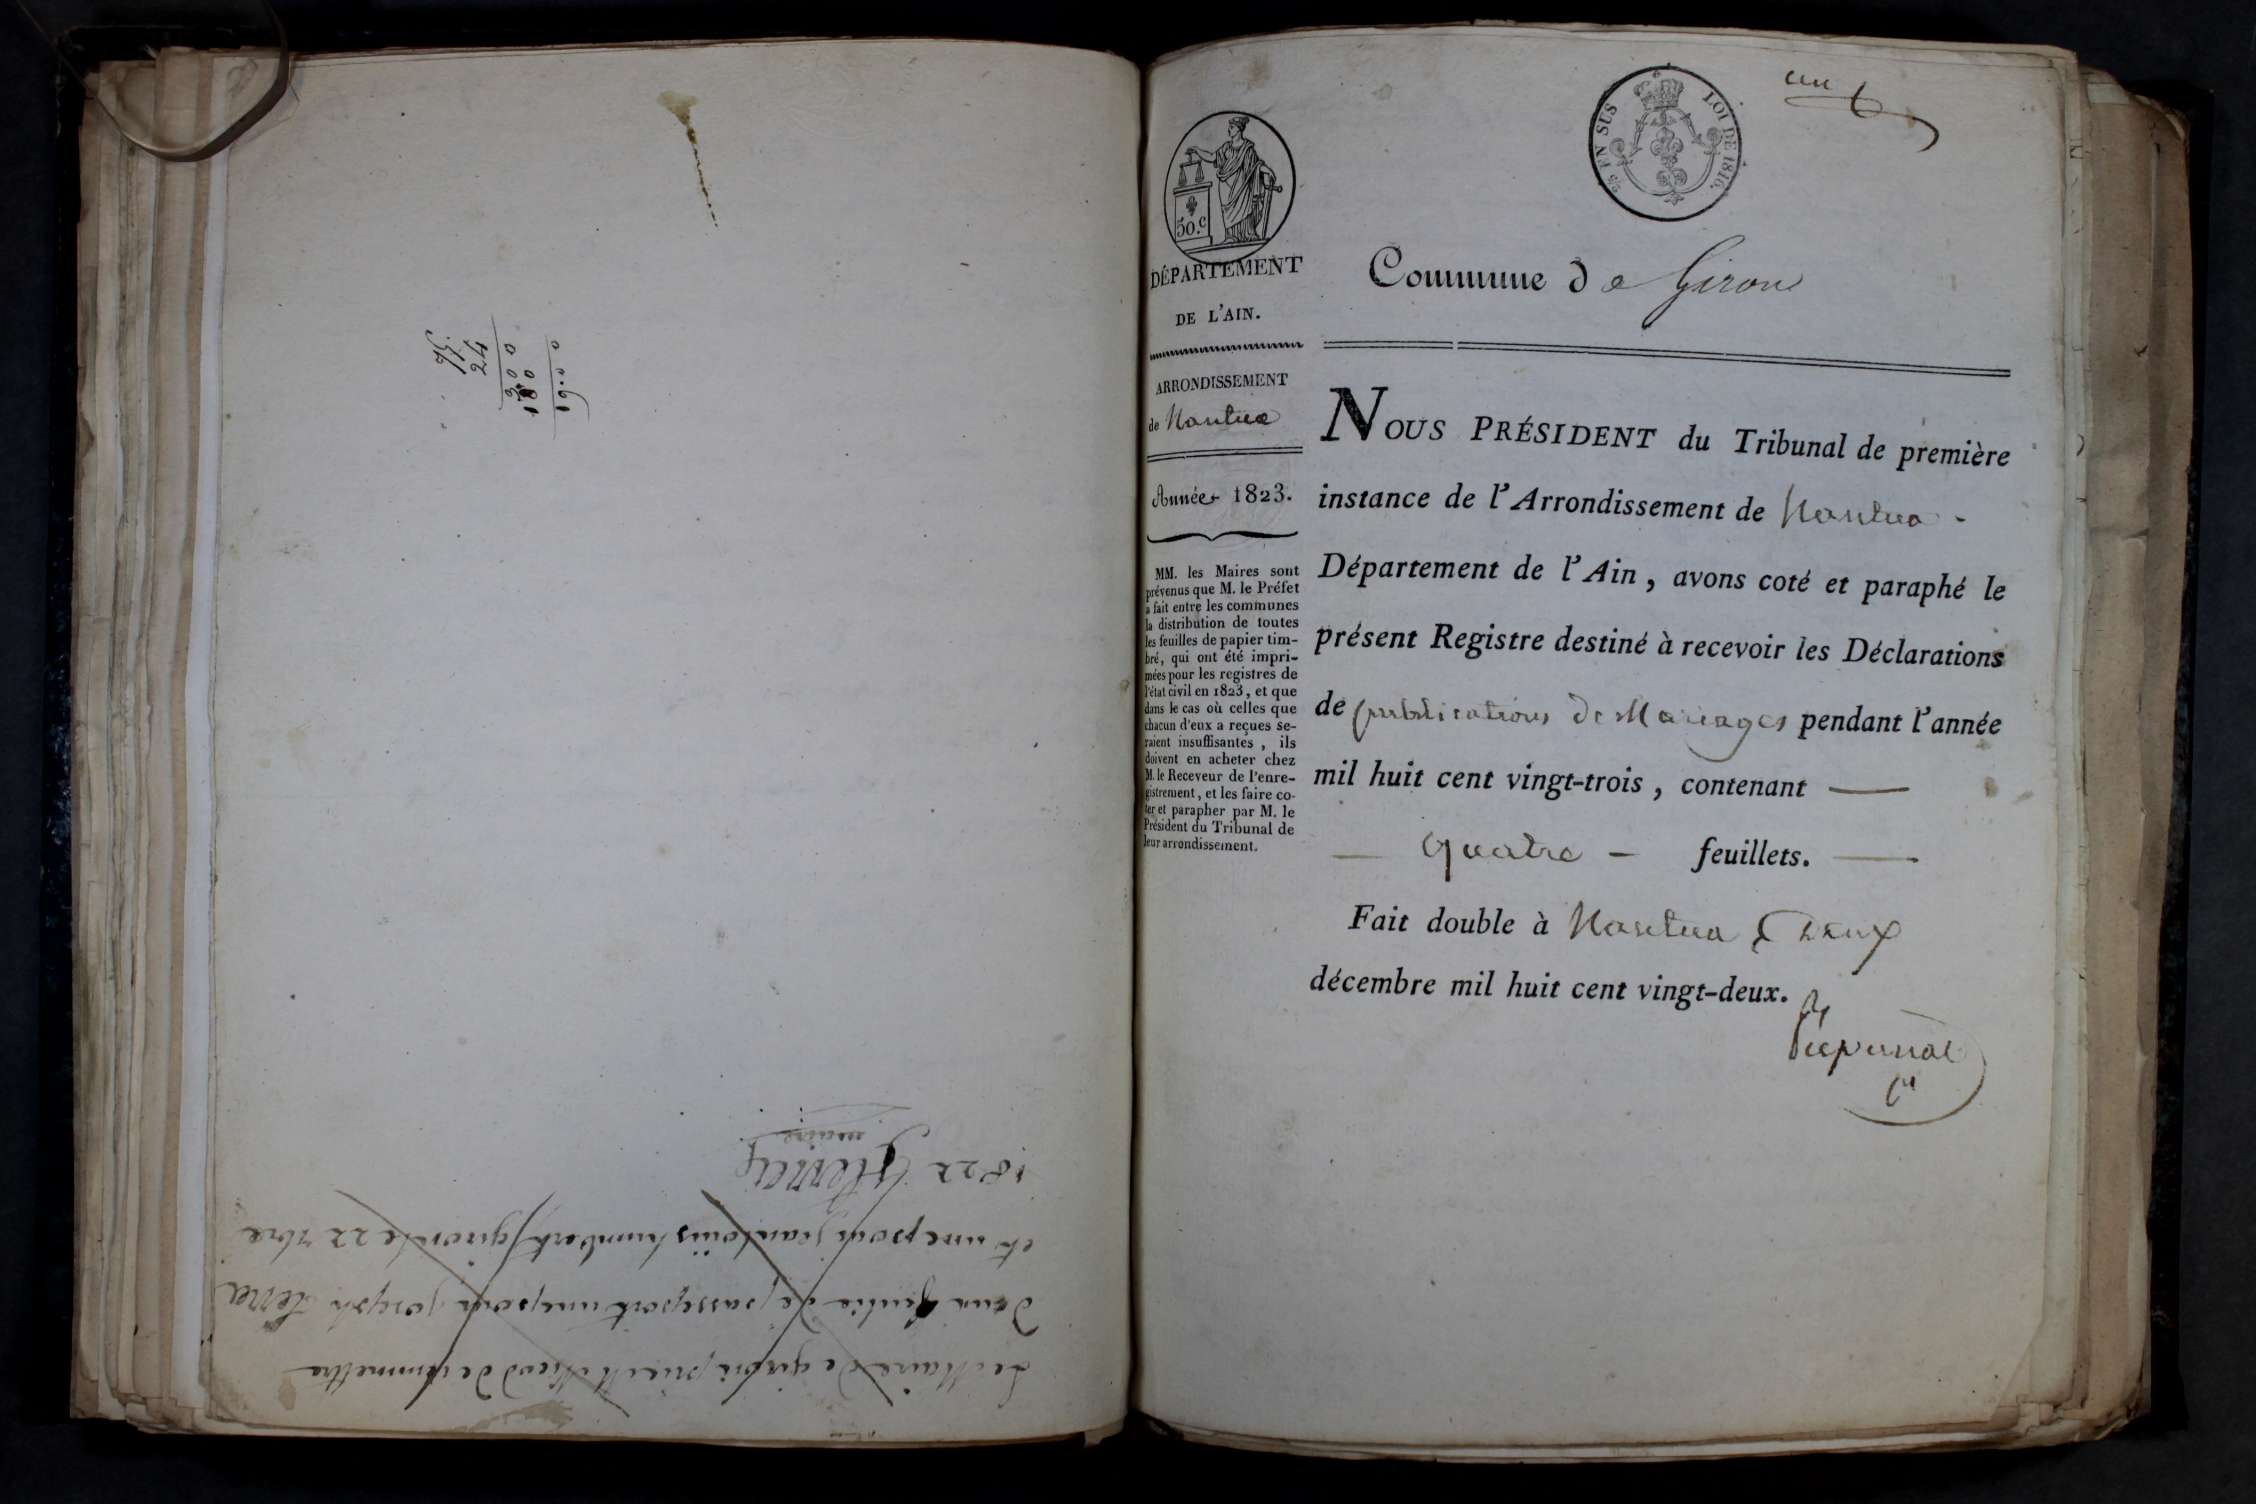 95.
24
300
180
1900
Le Maire de giron prie M Nicod de remmettre
deux feuilie de passeport une pour joseph tenra
et une pour jean loüis humbert giron le 22 7bre
1822
maire
un
50.c
EN SUS LOI DE 1816.
DÉPARTEMENT
DE L'AIN.
ARRONDISSEMENT
de Nantua
Année 1823.
MM. les Maires sont
prévenus que M. le Préfet
a fait entre les communes
la distribution de toutes
les feuilles de papier tim-
bré, qui ont été impri-
mées pour les registres de
l'état civil en 1823, et que
dans le cas où celles que
chacun d'eux a reçues se-
raient insuffisantes , ils
doivent en acheter chez
M. le Receveur de l'enre-
gistrement, et les faire co-
ter et parapher par M. le
Président du Tribunal de
leur arrondissement.
Commune de Giron
NOUS PRÉSIDENT du Tribunal de première
instance de l'Arrondissement de Nantua -
Département de l'Ain , avons coté et paraphé le
présent Registre destiné à recevoir les Déclarations
de publications de Mariages pendant l'année
mil huit cent vingt-trois , contenant —
— quatre — feuillets. —
Fait double à Nantua deux
décembre mil huit cent vingt-deux.